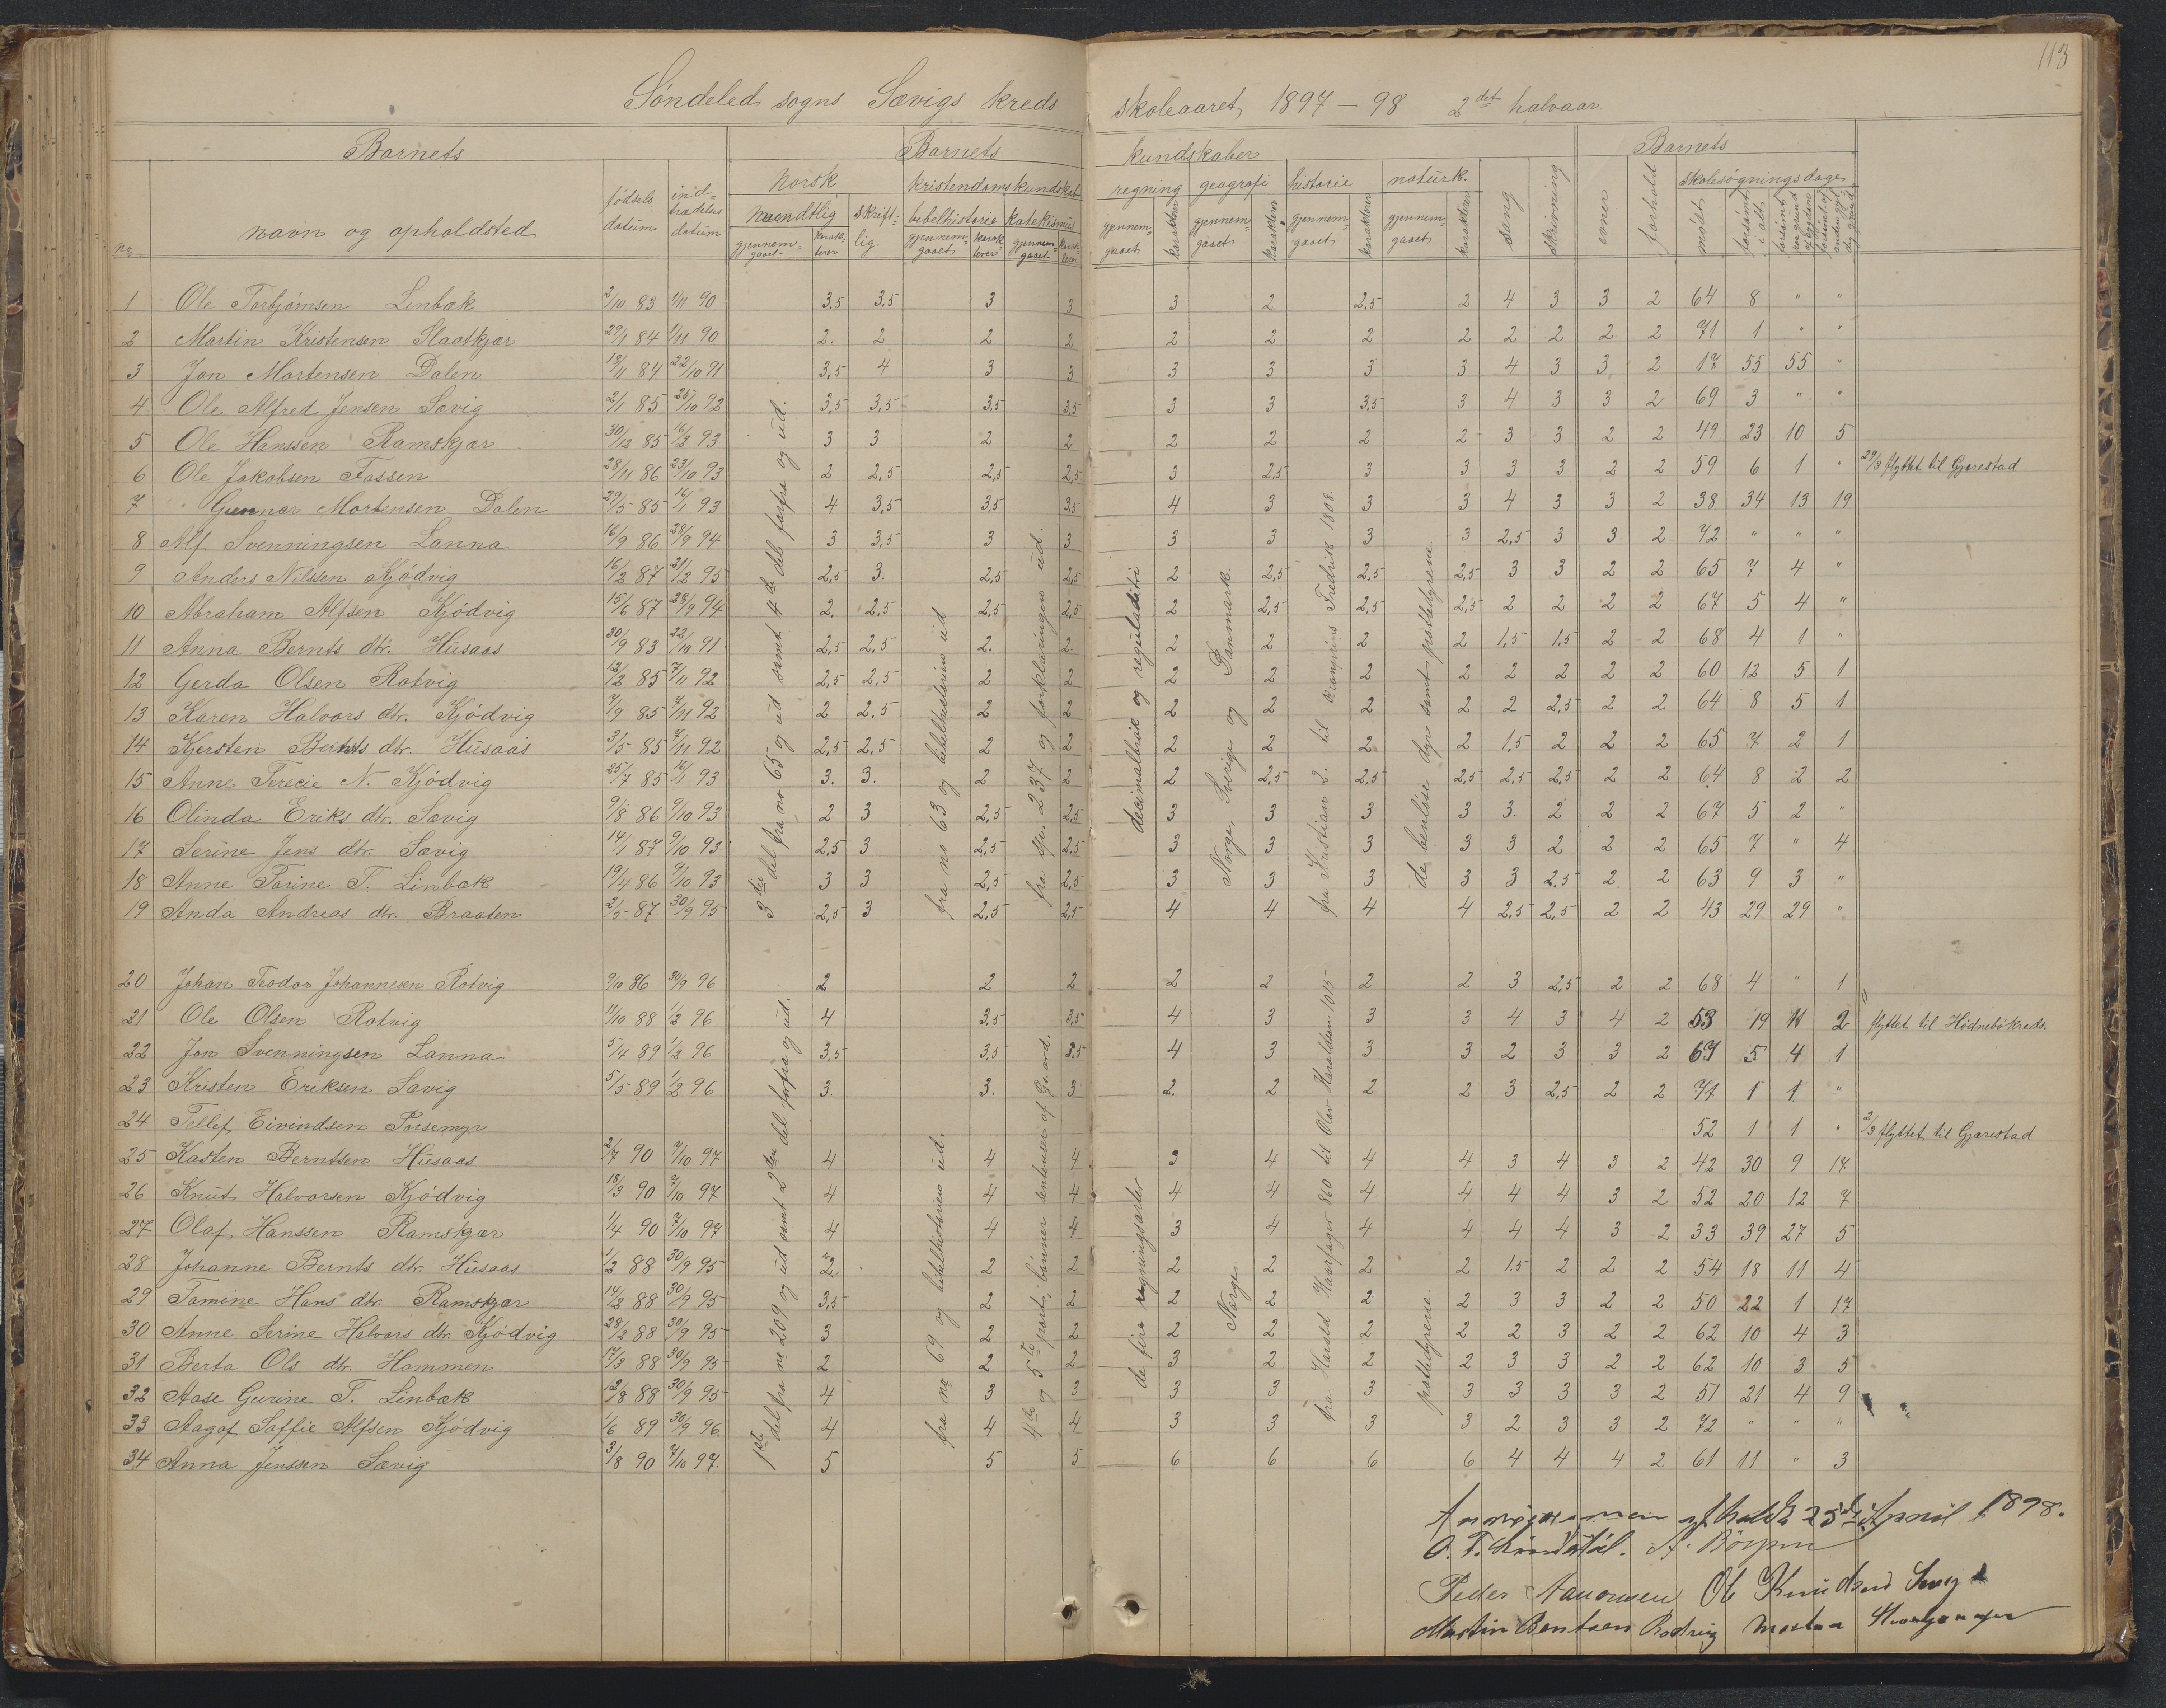 113
Søndeled sogns Sævigs kreds skoleaaret 1897 – 98 2det halvaar.
Barnets Barnets kundskaber Barnets
no navn og opholdsted fødsels datum indtrædelses datum norsk kristendomskundskab regning geografi historie naturk. sang skrivning evner forhold skolesøgningsdage
mundtlig skriftlig. bibelhistorie katekismus
gjennemgaaet karakterer gjennemgaaet karakterer gjennemgaaet karakterer gjennemgaaet karakterer gjennemgaaet karakterer gjennemgaaet karakterer gjennemgaaet karakterer mødt forsømt i alt
1 Ole Torbjørnsen Linbæk 2/10 83 1/11 90 3,5 3,5 3 3 3 2 2,5 2 4 3 3 2 64 8 " "
2 Martin Kristensen Slaatkjær 29/1 84 1/11 90 2. 2 2 2 2 2 2 2 2 2 2 2 71 1 " "
3 Jon Mortensen Dalen 18/11 84 22/10 91 3,5 4 3 3 3 3 3 3 4 3 3 2 17 55 55 "
4 Ole Alfred Jensen Sævig 2/1 85 25/10 92 3,5 3,5 3,5 3,5 3 3 3,5 3 4 3 3 2 69 3 " "
5 Ole Hanssen Ramskjær 30/12 85 16/3 93 3 3 2 2 2 2 2 2 3 3 2 2 49 23 10 5
6 Ole Jakobsen Fossen 28/11 86 23/10 93 2 2,5 2,5 2,5 3 2,5 3 3 3 3 2 2 59 6 1 " 29/3 flyttet til Gjerestad
7 Gunnar Mortensen Dalen 29/5 85 16/1 93 4 3,5 3,5 3,5 4 3 3 3 4 3 3 2 38 34 13 19
8 Alf Svenningsen Lanna 16/9 86 28/9 94 3 3,5 3 3 3 3 3 3 2,5 3 3 2 72 " " "
9 Anders Nilssen Kjødvig 16/2 87 21/2 95 2,5 3. 2,5 2,5 2 2,5 2,5 2,5 3 3 2 2 65 7 4 "
10 Abraham Alfsen Kjødvig 15/6 87 28/9 94 2. 2,5 2,5 2,5 2 2,5 2,5 2,5 2 2 2 2 67 5 4 "
11 Anna Bernts dtr. Husaas 30/9 83 22/10 91 2,5 2,5 2. 2. 2 2 2 2 1,5 1,5 2 2 68 4 1 "
12 Gerda Olsen Rotvig 12/2 85 7/11 92 2,5 2,5 2 2 2 2 2 2 2 2 2 2 60 12 5 1
13 Karen Halvors dtr. Kjødvig 7/9 85 7/11 92 2 2,5 2 2 2 2 2 2 2 2,5 2 2 64 8 5 1
14 Kjersten Bernts dtr. Husaas 3/5 85 7/11 92 2,5 2,5 2 2 2 2 2 2 1.5 2 2 2 65 7 2 1
15 Anne Terecie N. Kjødvig 25/7 85 16/1 93 3. 3. 2 2 2 2,5 2,5 2,5 2,5 2,5 2 2 64 8 2 2
16 Olinda Eriks dtr. Sævig 9/8 86 9/10 93 2 3 2,5 2,5 3 3 3 3 3. 2 2 2 67 5 2 "
17 Serine Jens dtr. Sævig 14/1 87 9/10 93 2,5 3 2,5 2,5 3 3 3 3 3 2 2 2 65 7 " 4
18 Anne Torine T. Linbæk 19/4 86 9/10 93 3 3 2,5 2,5 3 3 3 3 3 2.5 2 2 63 9 3 "
19 Anda Andreas dtr. Braaten 2/5 87 30/9 95 2,5 3 2,5 2,5 4 4 4 4 2,5 2,5 2 2 43 29 29 "
3die del fra no 65 og ud samt 4de del forfra og ud.
fra no 63 og bibelhistorien ud
fra spr. 237 og forklaringen ud.
decimalbrøk og reguladetri
Norge, Sverige og Danmark
fra Kristian 2. til kronprins Fredrik 1808.
de benløse dyr samt pattedyrene
20 Johan Teodor Johannesen Rotvig 9/10 86 30/9 96 2 2 2 2 2 2 2 3 2,5 2 2 68 4 " 1
21 Ole Olsen Rotvig 11/10 88 1/2 96 4 3,5 3,5 4 3 3 3 4 3 4 2 53 19 11 2 flyttet til Hødnebøkreds.
22 Jon Svenningsen Lanna 5/4 89 1/2 96 3,5 3,5 3.5 4 3 3 3 2 3 3 2 67 5 4 1
23 Kristen Eriksen Sævig 5/5 89 1/2 96 3. 3. 3 2. 2 2 2 3 2,5 2 2 71 1 1 "
24 Tellef Eivindsen Porsemyr 52 1 1 " 2/3 flyttet til Gjærestad
25 Kasten Berntsen Husaas 2/7 90 7/10 97 4 4 4 3 4 4 4 3 4 3 2 42 30 9 17
26 Knut Halvorsen Kjødvig 18/3 90 7/10 97 4 4 4 4 4 4 4 4 4 3 2 52 20 12 7
27 Olaf Hanssen Ramskjær 11/4 90 7/10 97 4 4 4 3 4 4 4 4 4 3 2 33 39 27 5
28 Johanne Bernts dtr. Husaas 1/2 88 30/9 95 2 2 2 2 2 2 2 1.5 2 2 2 54 18 11 4
29 Tomine Hans dtr. Ramskjær 14/2 88 30/9 95 3,5 2 2 2 2 2 2 3 3 2 2 50 22 1 17
30 Anne Serine Halvors dtr. Kjødvig 28/2 88 30/9 95 3 2 2 2 2 2 2 2 3 2 2 62 10 4 3
31 Berta Ols dtr. Hammen 17/3 88 30/9 95 2 2 2 3 2 2 2 3 3 2 2 62 10 3 5
32 Aase Gurine T. Linbæk 12/8 88 30/9 95 4 3 3 3 3 3 3 3 3 3 2 51 21 4 9
33 Aagot Soffie Alfsen Kjødvig 1/6 89 30/9 96 4 4 4 3 3 3 3 2 3 3 2 72 " " "
34 Anna Jenssen Sævig 3/8 90 7/10 97. 5 5 5 6 6 6 6 4 4 4 2 61 11 " 3
1ste del fra no 209 og ud samt 2den del forfra og ud.
fra no 69 og bibelhistorien ud.
4de og 5te part; bønner
de fire regningsarter
Norge.
fra Harald Haarfager 860 til Olav Haraldsøn 1015
pattedyrene.
afholdt 25de April 1898.
Peder Ole Knudsen
Martin Bentsen Rodvig